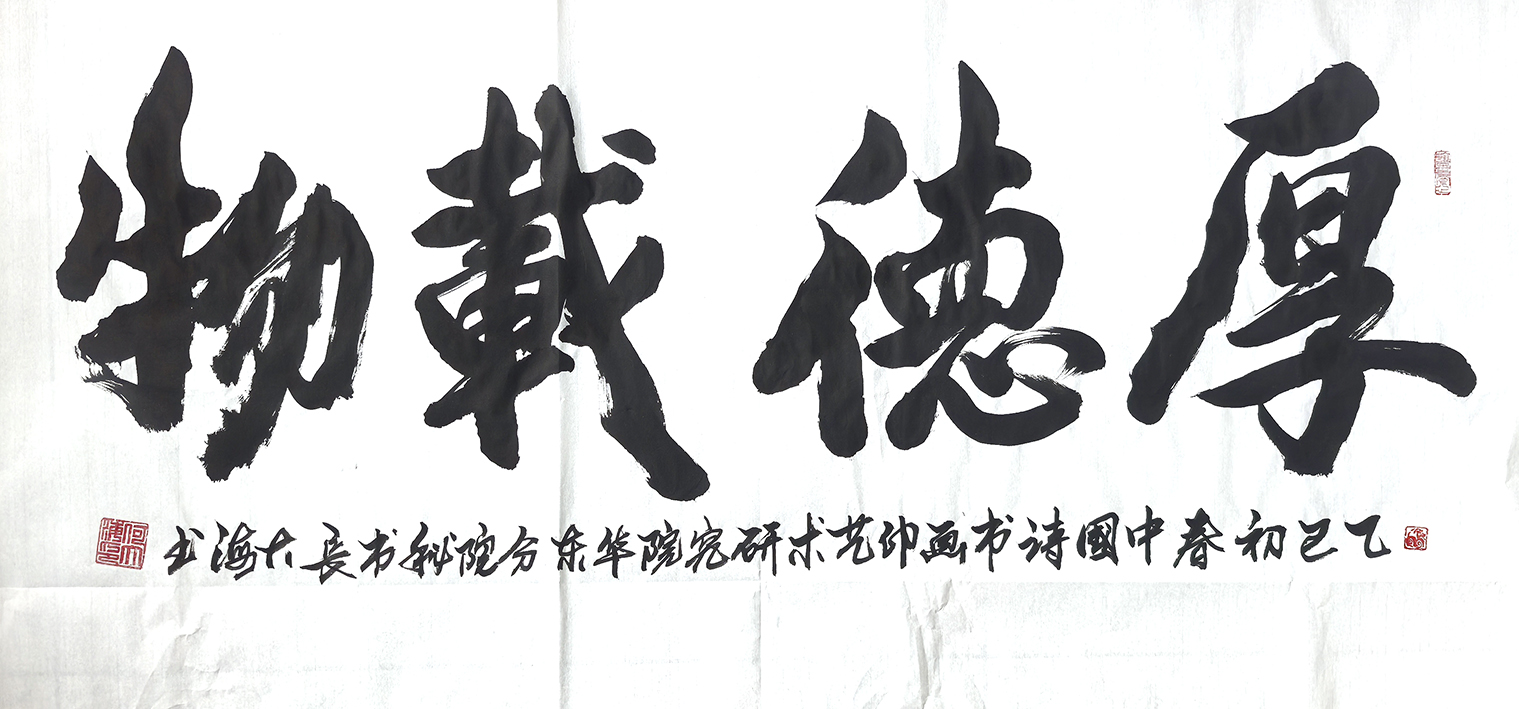 厚德載物
乙巳初春中國詩书画印艺术研究院华东分院秘书長大海书